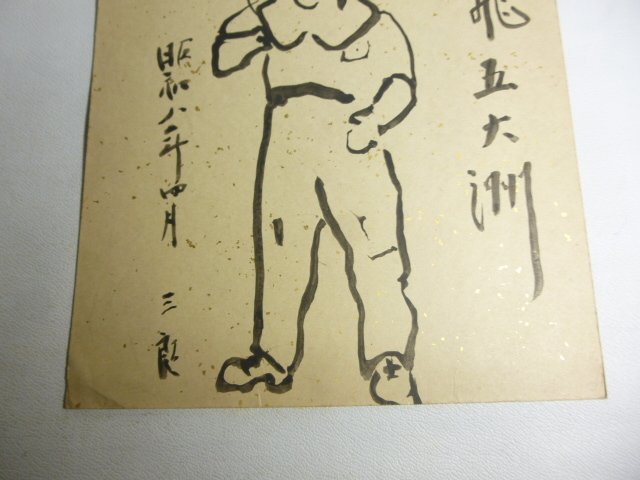 飛五大洲
昭和八年四月
三郎